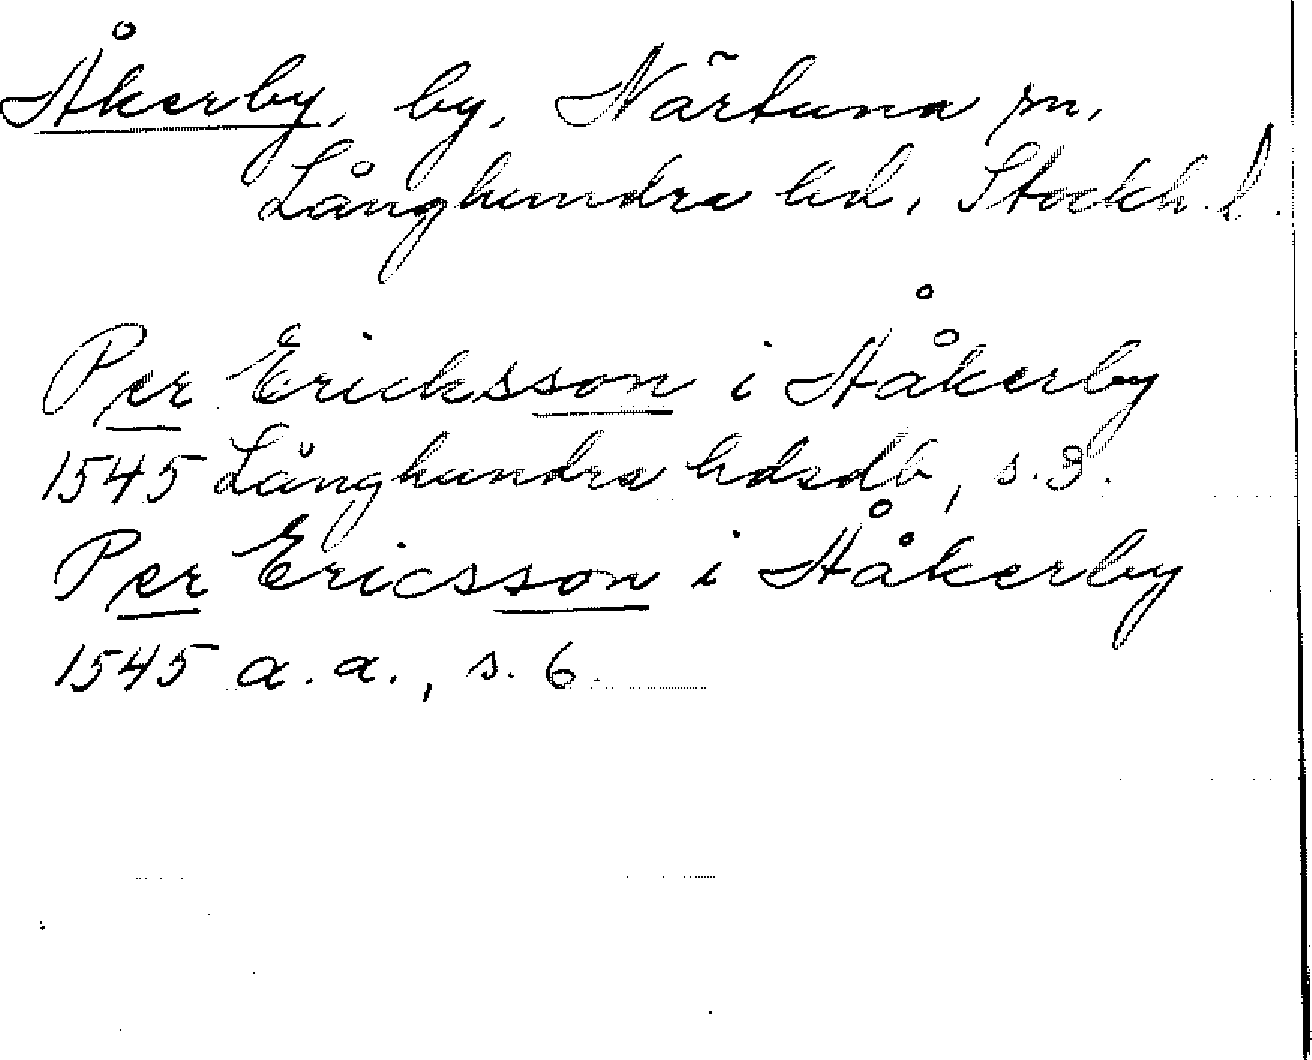 Åkerby, by, Närtuna sn,
Långhundra hd, Stockh. l.
Per Ericksson i Ååkerby
1545 Långhundra hdsdb, s. 3.
Per Ericsson i Ååkerby
1545 a. a., s. 6.